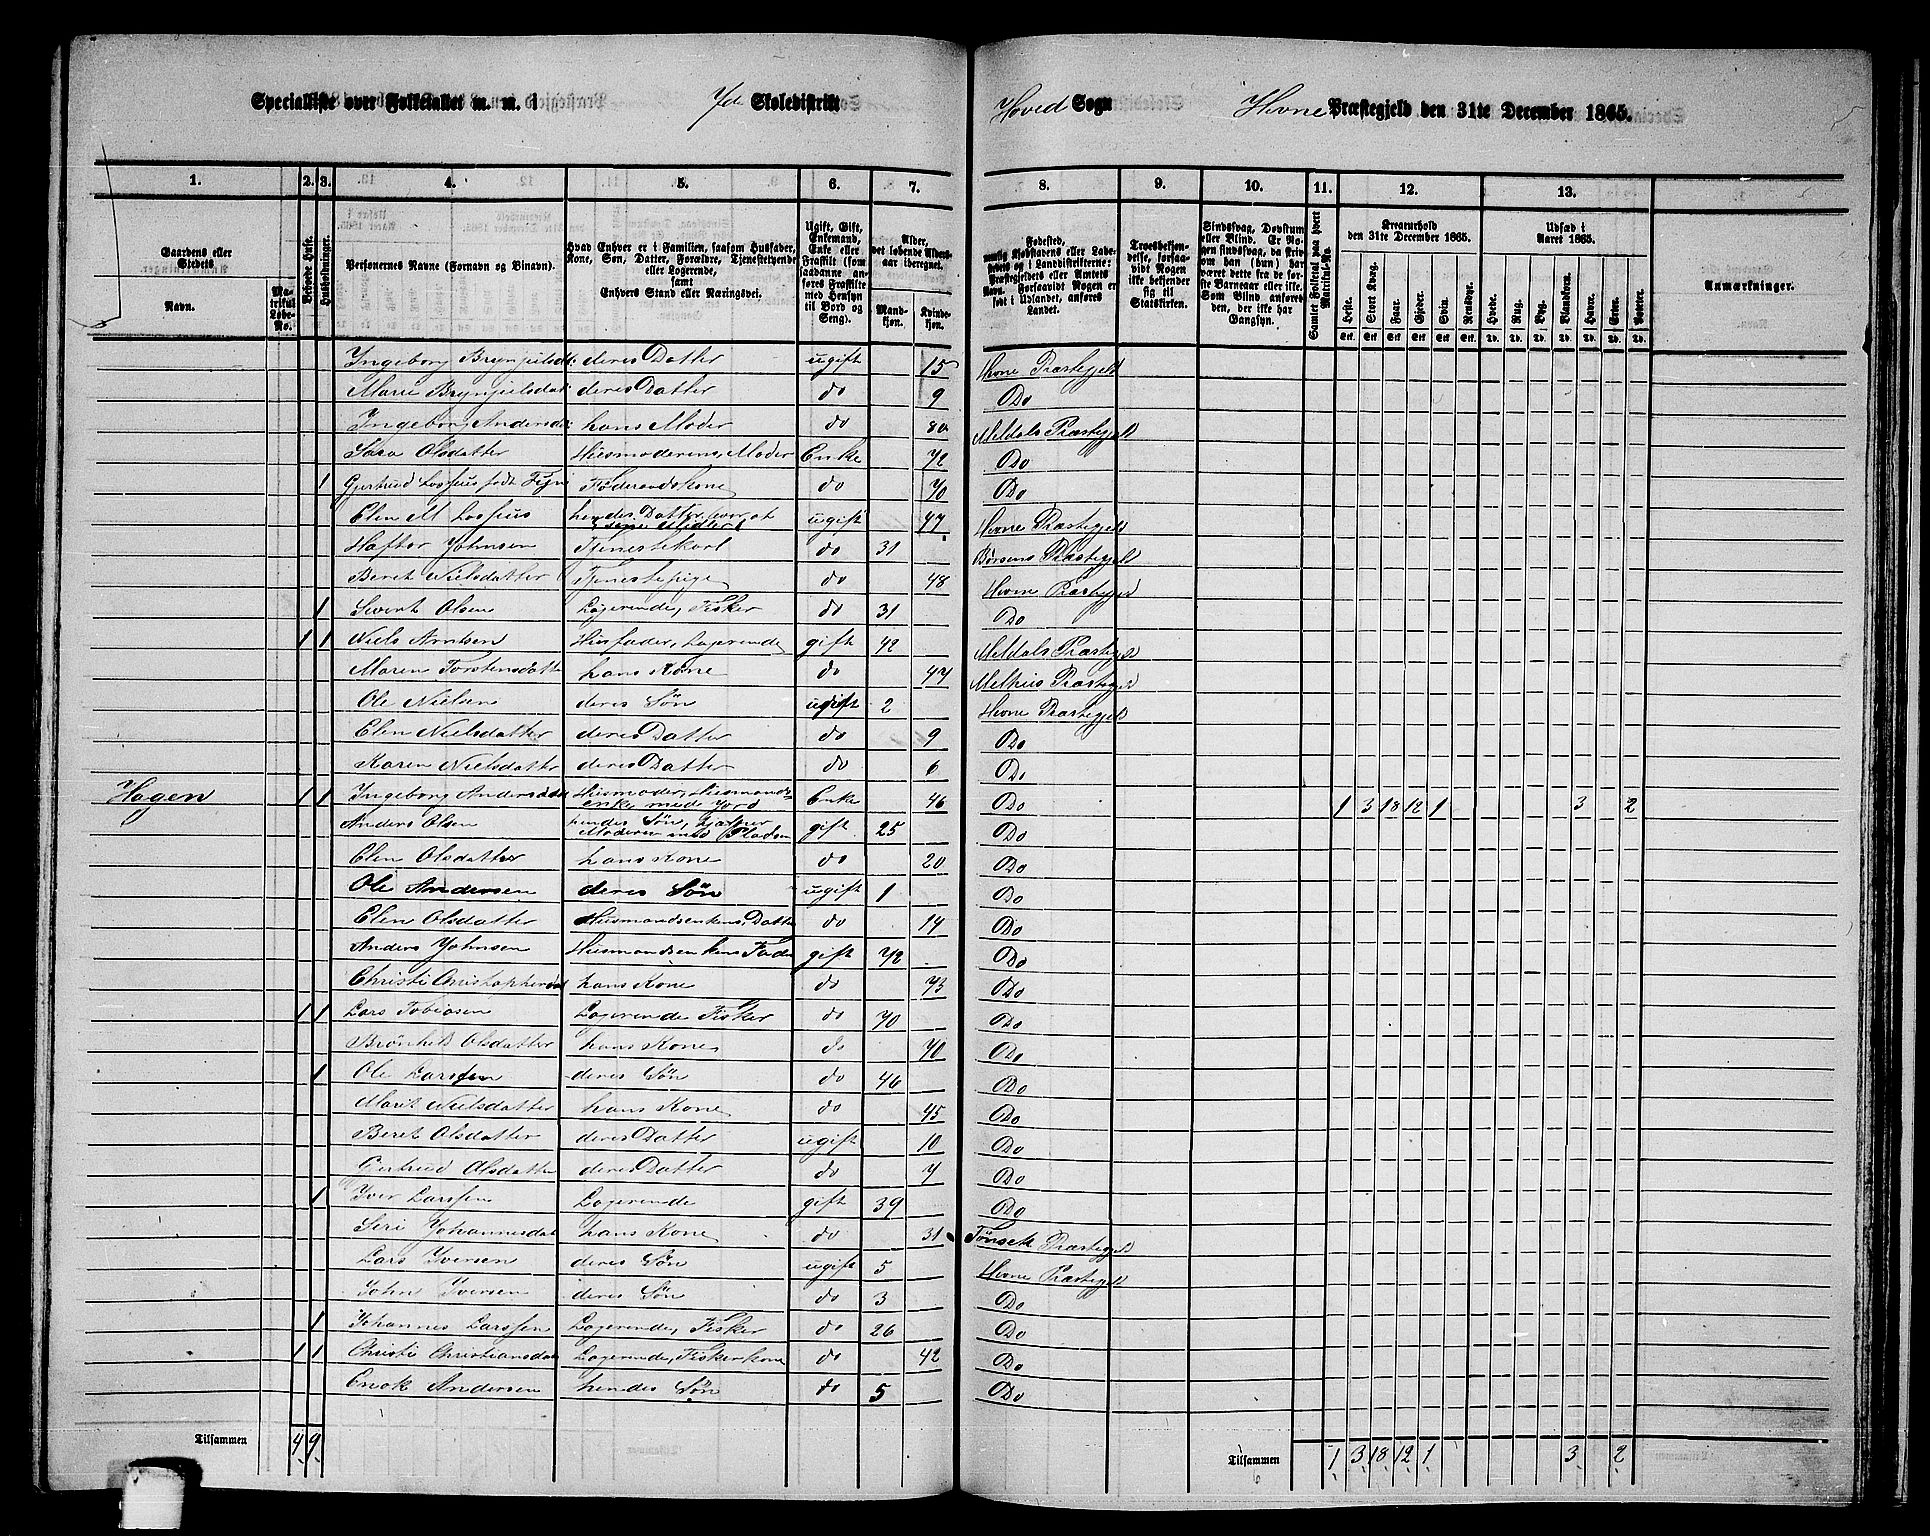 Specialliste over Folketallet m. m. i Yd Skoledistrikt Hoved Sogn Hevne Præstegjeld den 31te December 1865.
1. 2. 3. 4. 5. 6. 7. 8. 9. 10. 11. 12. 13.
Gaardens eller Stedets Navn. Matrikul Løbe-No. Beboede Huse. Husholdninger. Personernes Navne (Fornavn og Binavn). Hvad Enhver er i Familien, saasom Husfader, Kone, Søn, Datter, Forældre, Tjenestetyende eller Logerende, samt Enhvers Stand eller Næringsvei. Ugift, Gift, Enkemand, Enke eller Fraskilt (som saadanne anføres Fraskilte med Hensyn til Bord og Seng). Alder, det løbende Aldersaar iberegnet. Mandkjøn. Kvindekjøn.
Troesbekjendelse, forsaavidt Nogen ikke bekjender sig til Statskirken. Sindssvag, Døvstum eller Blind. Samlet Folketal paa hvert Matrikul-No. Kreaturhold den 31te December 1865. Heste. Stort Kvæg. Faar. Gjeder. Svin. Rensdyr. Udsæd i Aaret 1865. Hvede. Rug. Byg. Blandkorn. Havre. Erter. Poteter. Anmærkninger.
Ingeborg Brynjulsdt: deres Datter ugift 15 Hevne Præstegjeld
Marie Brynjulsdat: deres Datter do 9 Do
Ingeborg Andersd: hans Moder do 80 Meldals Præstegjeld
Sara Olsdatter Husmoderens Moder Enke 72 Do
1 Gjertrud Lossius født Fyn Føderaadskone do 70 Do
Elen M Lossius hendes Datter ugift 47 Hevne Præstegjeld
Haftor Johnsen Tjenestekarl do 31 Børsens Præstegjeld
Beret Nielsdatter Tjenestepige do 48 Hevne Præstegjeld
1 Sivert Olsen Logerende, Fisker do 31 Do
1 1 Niels Arntsen Husfader, Logerende gift 42 Meldals Præstegjeld
Maren Torstensdatter hans Kone do 47 Melhus Præstegjeld
Ole Nielsen deres Søn ugift 2 Hevne Præstegjeld
Elen Nielsdatter deres Datter do 9 Do
Karen Nielsdatter deres Datter do 6 Do
Hagen 1 1 Ingeborg Andersdat Husmoder, Husmandsenke med Jord Enke 46 Do 1 3 18 12 1 3 2
Anders Olsen hendes Søn, hjælper Moderen med Pladsen gift 25 Do
Elen Olsdatter hans Kone do 20 Do
Ole Andersen deres Søn ugift 1 Do
Elen Olsdatter Husmandsenkens Datter do 14 Do
Anders Johnsen Husmandsenkens Fader gift 72 Do
Christi Christophersdat hans Kone do 73 Do
1 1 Lars Tobiasen Logerende Fisker do 70 Do
Brønhild Olsdatter hans Kone do 70 Do
1 Ole Larssen deres Søn do 46 Do
Marit Nielsdatter hans Kone do 45 Do
Beret Olsdatter deres Datter ugift 10 Do
Gertrud Olsdatter deres Datter do 7 Do
1 Iver Larssen Logerende gift 39 Do
Seri Johannesdat hans Kone do 31 Tønset Præstegjeld
Lars Iversen deres Søn ugift 5 Hevne Præstegjeld
John Iversen deres Søn do 3 Do
1 Johannes Larssen Logerende, Fisker do 26 Do
1 1 Christi Christiansdat Logerende, Fiskerkone do 42 Do
Enok Andersen hendes Søn do 5 Do
Tilsammen 4 9 Tilsammen 1 3 18 12 1 3 2
6